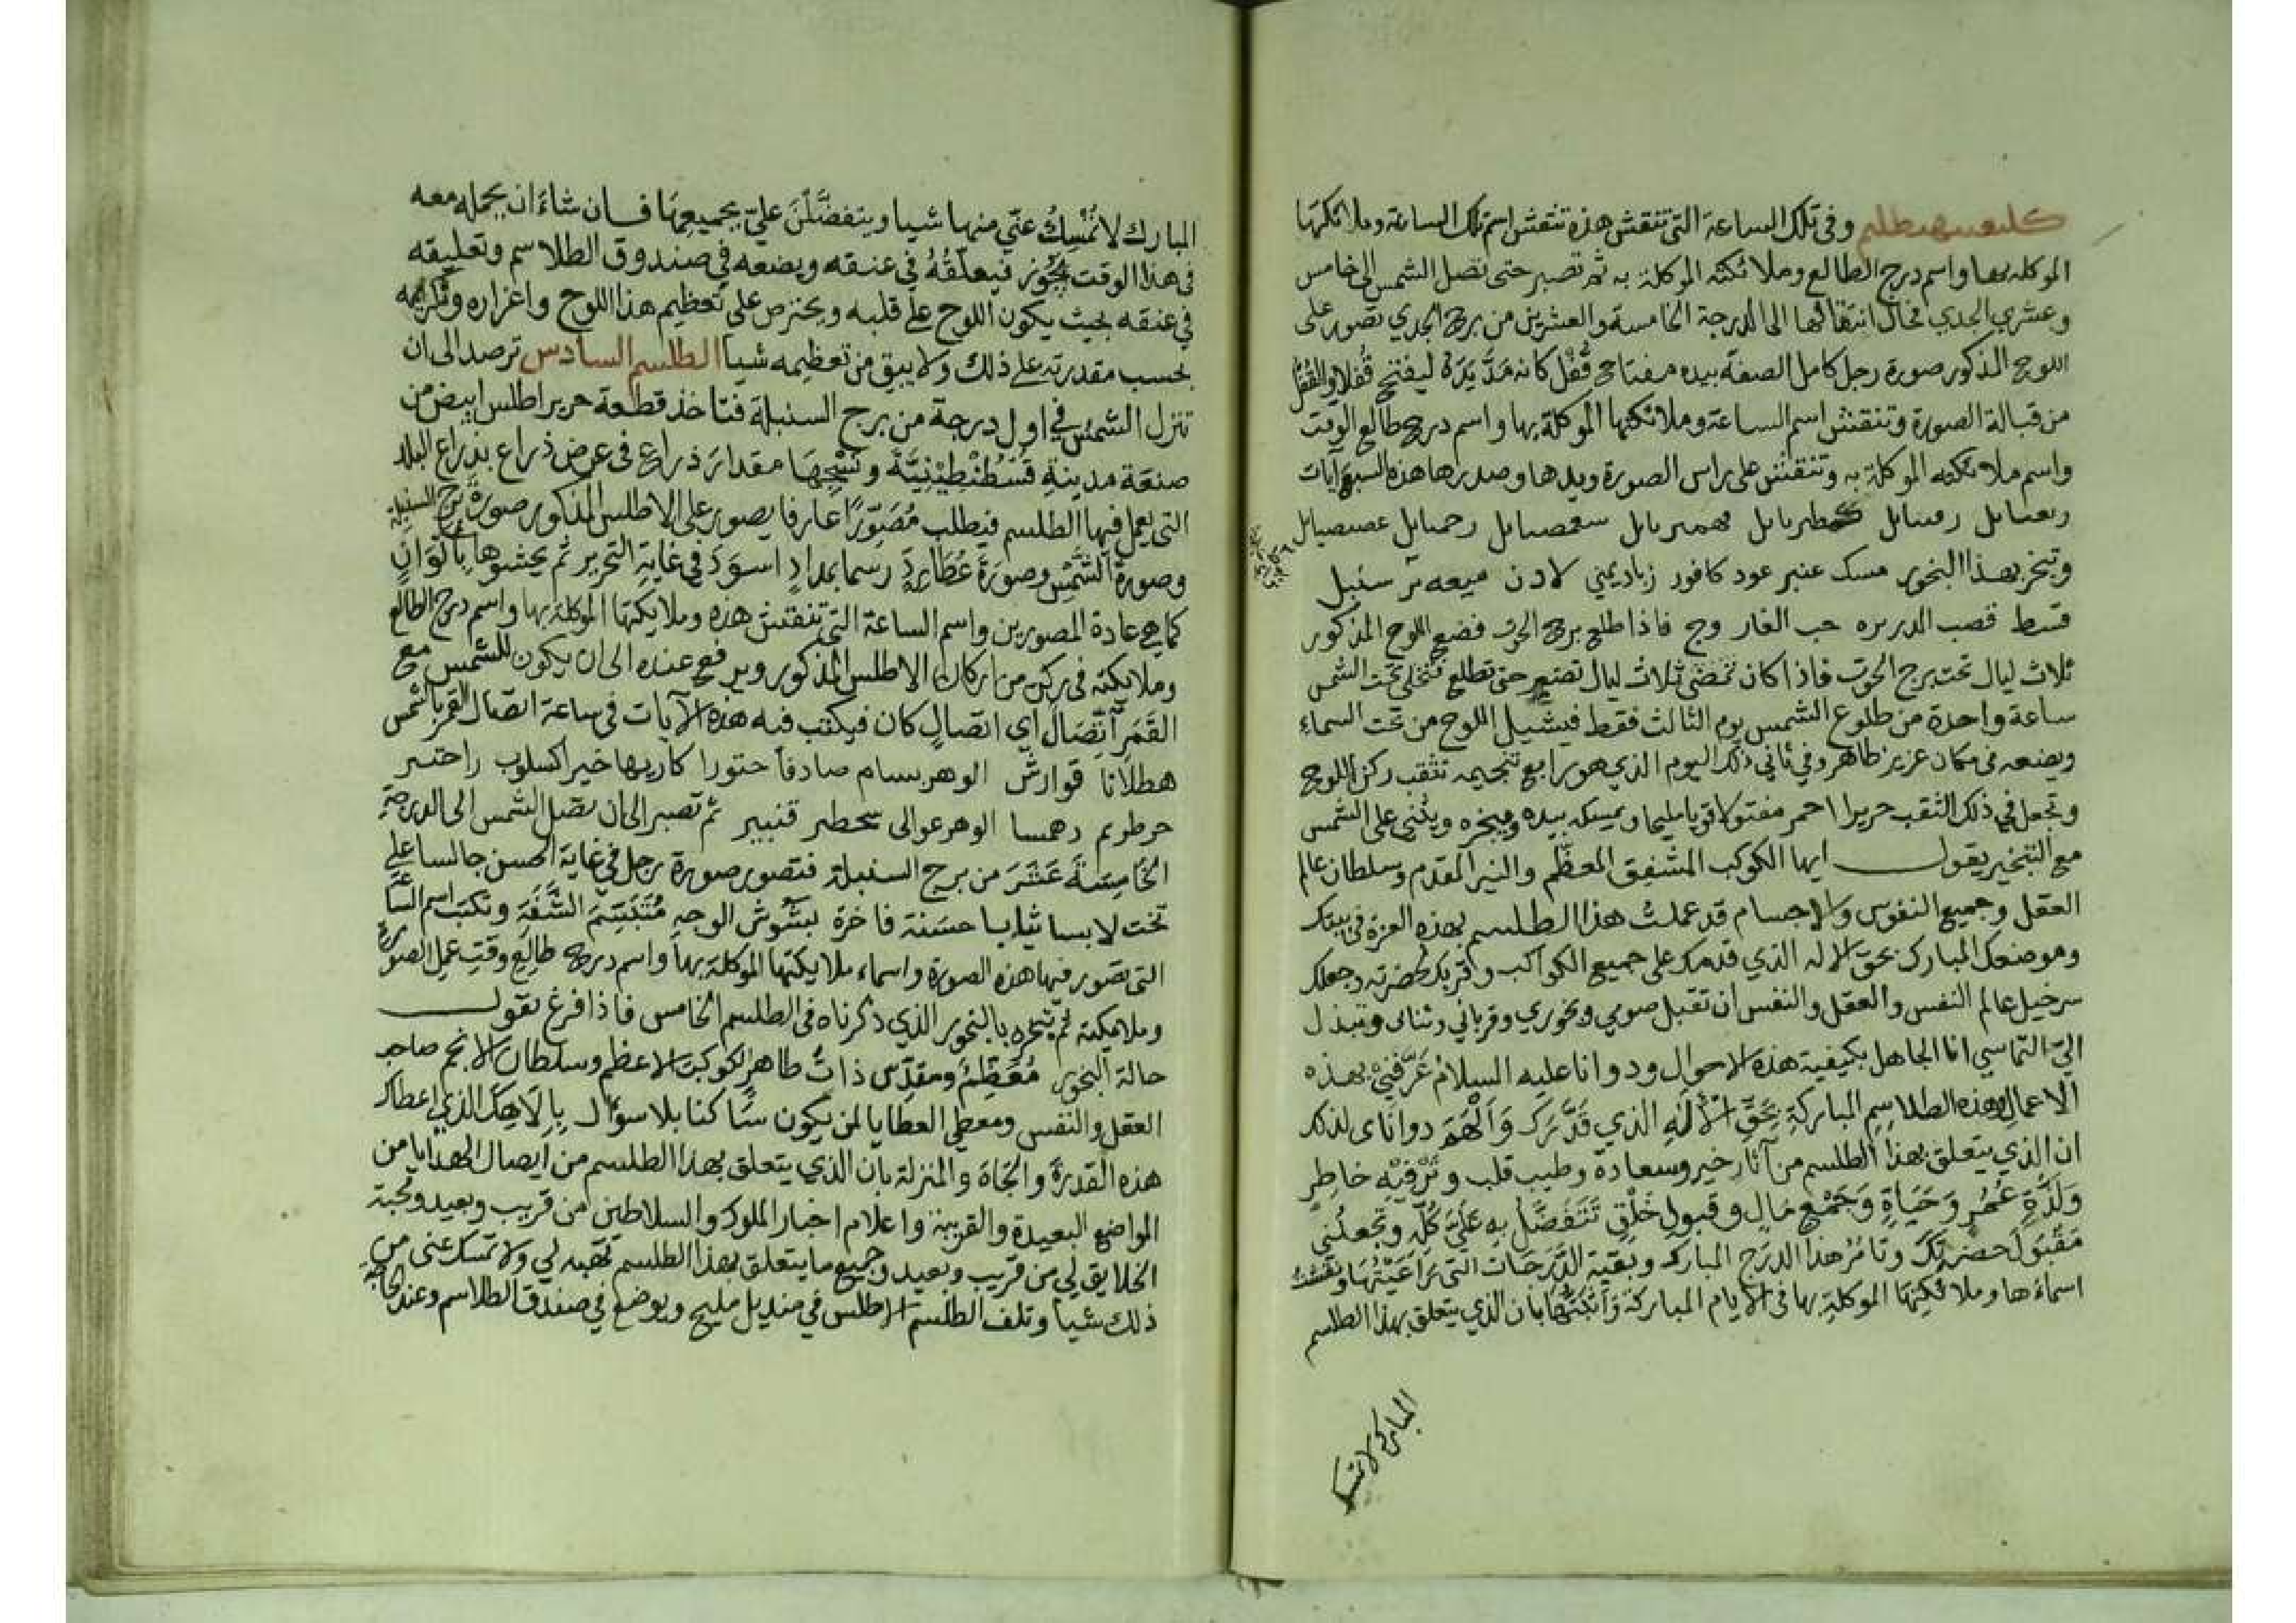 وفى تلك الساعة التى تنقش هذه تنقش اسم تلك الساعة وملائكتها
الموكله بها واسم درج الطالع وملائكته الموكلة به ثم تصبر حتى تصل الشمس الى خامس
وعشري الجدي فحال انتقالها الى الدرجة الخامسة والعشرين من برج الجدي تصور على
اللوح المذكور صورة رجل كامل الصفة بيده مفتاح قُفْل كانه مَدَّ يَدَهُ ليفتح قُفلا والقُفْل
من قبالة الصورة وتنقش اسم الساعة وملائكتها الموكلة بها واسم درج طالع الوقت
واسم ملائكته الموكلة به وتنقش على راس الصورة ويدها وصدرها هذه السبع ايات
وتبخر بهذا البخور مسك عنبر عود كافور زباد يمني لادن ميعه تر سنبل
قسط قصب الدريره حب الغار وج فاذا طلع برج الحوت فضع اللوح المذكور
ثلاث ليال تحت برج الحوت فاذا كان تمضى ثلاث ليال تصبر حتى تطلع تخلي تحت الشمس
ساعة واحدة من طلوع الشمس يوم الثالث فقط فيشيل اللوح من تحت السماء
ويضعه فى مكان عزيز طاهر وفي ثاني ذلك اليوم الذي هو رابع تنجيمه تثقب ركن اللوح
وتجعل في ذلك الثقب حريرا احمر مفتولا قويا مليحا ويمسكه بيده ويبخره ويثني على الشمس
مع التبخير يقول ايها الكوكب المشفق المعظم والنير المقدم وسلطان عالم
العقل وجميع النفوس والاجسام قد عملت هذا الطلسم بهذه العزة فى بيتك
وموضعك المبارك بحق الاله الذي قدمك على جميع الكواكب وقربك لحضرته وجعلك
سرخيل عالم النفس والعقل والنفس ان تقبل صومي وبخوري وقرباني وثنائى وتبذل
الىّ التماسي انا الجاهل بكيفية هذه الاحوال ودوانا عليه السلام عَرَّفنِيْ بهذه
الاعمال وهذه الطلاسم المباركةِ بحَقِّ الالهِ الذي قَدَّرَك وَاَلْهَمَ دواناى لذلك
ان الذي يتعلق بهذا الطلسم من آثار خير وسعادة وطيب قلب وتَرْفِيْهِ خاطرٍ
وَلَذَّةِ عُمُرٍ وَحَيَاةٍ وَجَمْعِ مَالٍ وقبولِ خَلْقٍ تَتَفَضَّل بهِ عَلَيَّ كُلِّه وتجعلُني
مَقْبُولَ حضرتِكَ وتامُرُ هذا الدرَج المبارك وبقية الدَّرَجَات التى رَاعَيْتُهَا ونقشتُ
اسماءَها وملائكتِهَا الموكلةِ بها فى الايام المباركة بان الذي يتعلق بهذا الطلسم
المبارك لا تمسك
المبارك لا تُمْسِكُ عَنّي منها شيا ويتفضَّلْنَ عليّ بجميعِهَا فان شاءَ ان يحمله معه
فى هذا الوقت يجُوز فيعلّقُهُ في عنقه ويضعه في صندوق الطلاسم وتعليقه
في عنقه بحيث يكون اللوح على قلبه ويحترص على تعظيم هذا اللوح واعزازه وتكريمه
بحسب مقدرته على ذلك ولا يبق من تعظيمه شيآ الطلسم السادس ترصد الى ان
تنزل الشمسُ في اول درجة من برج السنبلة فتاخذ قطعة حرير اطلس ابيض من
صنعة مدينةِ قُسْطُنْطِيْنِيَّةَ ونَسْجِهَا مقدار ذراع فى عرض ذراع بذراع البلد
التى يعمل فيها الطلسم فيطلب مُصَوّرًا عارفا يصور على الاطلس المذكور صورةَ برج السنبلة
وصورةَ الشَّمْسِ وصورَةَ عُطَارِدَ رسما بمدادٍ اسوَدَ فى غايةِ التحرير ثم يحشوها بِاَلْوَانٍ
كما هي عادة المصورين واسم الساعة التى تنقش هذه وملايكتها الموكلة بها واسم درج الطالع
وملايكته فى ركن من اركان الاطلس المذكور ويرفع عنده الى ان يكون للشمس مع
القَمَرِ اتّصَالٌ اي اتصالٍ كان فيكتب فيه هذه الآيات فى ساعة اتصال القمر بالشمس
هطلاثا قوارش الوهر بسام صادفا حتورا كاريها خير اكسلوب راحتر
ثم تصبر الى ان تصل الشمس الى الدرجة
الخَامِسَةَ عَشَرَ من برج السنبلة فتصور صورة رجل فى غاية الحسن جالسا على
تخت لابسا ثيابا حسَنة فاخرة بشُوش الوجهِ مُتَبَسِّمَ الشَّفَةِ وتكتبَ اسم السَّاعَة
التى تصور فيها هذه الصورة واسماء ملايكتها الموكلة بها واسم درج طالعِ وقتِ عمل الصورة
وملايكته ثم تبخره بالبخور الذي ذكرناه فى الطلسم الخامس فاذا فرغ يقول
حالة البخور مُعَظمُ ومقدّس ذاتُ طاهر الكوكب الاعظم وسلطان الانجم صاحب
العقل والنفس ومعطي العطايا لمن يكون سَاكنا بلا سؤال بالاهِكَ الذي اعطاك
هذه القدرةَ والجَاهَ والمنزلة بان الذي يتعلق بهذا الطلسم من ايصال الهدايا من
المواضع البعيدة والقريبة واعلام اخبار الملوك والسلاطين من قريب وبعيد ومحبة
الخلايق لي من قريب وبعيد وجميع ما يتعلق بهذا الطلسم تهبه لي ولا تمسك عنى من
ذلك شيا وتلف الطلسم الاطلس في منديل مليح ويوضع في صندق الطلاسم وعند الحاجة